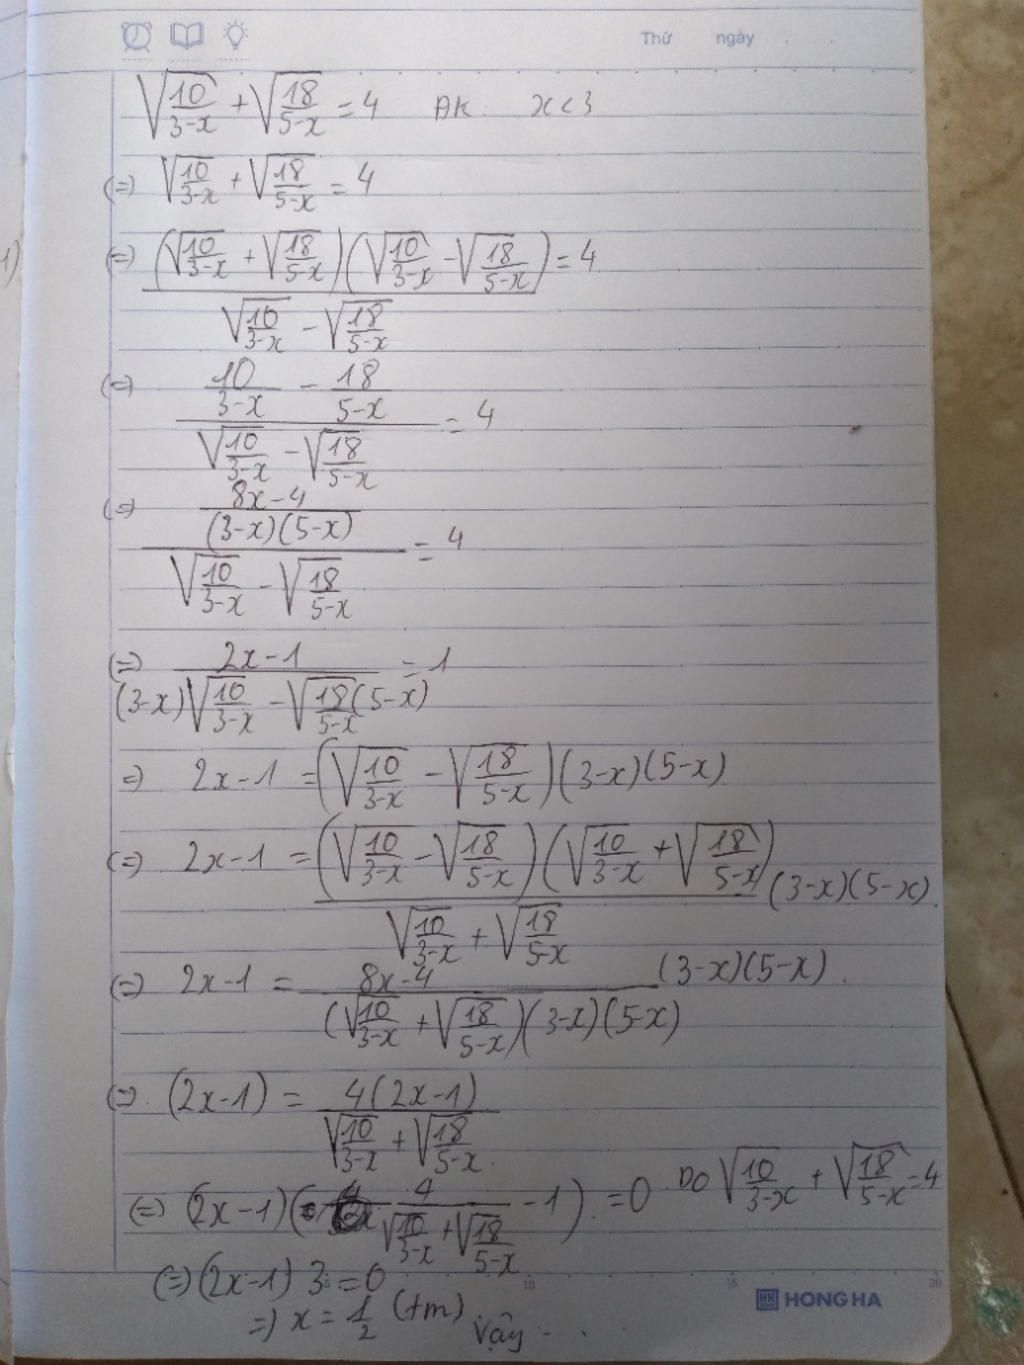 Thứ ngày
√(10/(3-x)) + √(18/(5-x)) = 4 ĐK: x < 3
(=) √(10/(3-x)) + √(18/(5-x)) = 4
1)
(=) (√(10/(3-x)) + √(18/(5-x)))(√(10/(3-x)) - √(18/(5-x))) / (√(10/(3-x)) - √(18/(5-x))) = 4
(=) (10/(3-x) - 18/(5-x)) / (√(10/(3-x)) - √(18/(5-x))) = 4
(=) ((8x-4)/((3-x)(5-x))) / (√(10/(3-x)) - √(18/(5-x))) = 4
(=) (2x-1) / ((3-x)√(10/(3-x)) - √(18/(5-x))(5-x)) = 1
=) 2x-1 = (√(10/(3-x)) - √(18/(5-x)))(3-x)(5-x)
(=) 2x-1 = (√(10/(3-x)) - √(18/(5-x)))(√(10/(3-x)) + √(18/(5-x))) / (√(10/(3-x)) + √(18/(5-x))) (3-x)(5-x)
(=) 2x-1 = (8x-4) / ((√(10/(3-x)) + √(18/(5-x)))(3-x)(5-x)) (3-x)(5-x).
(=) (2x-1) = 4(2x-1) / (√(10/(3-x)) + √(18/(5-x)))
(=) (2x-1)(4/(√(10/(3-x)) + √(18/(5-x))) - 1) = 0 Do √(10/(3-x)) + √(18/(5-x)) = 4
(=) (2x-1) 3 = 0
=) x = 1/2 (tm).
Vậy ...
5 10 15 20
HH HONG HA